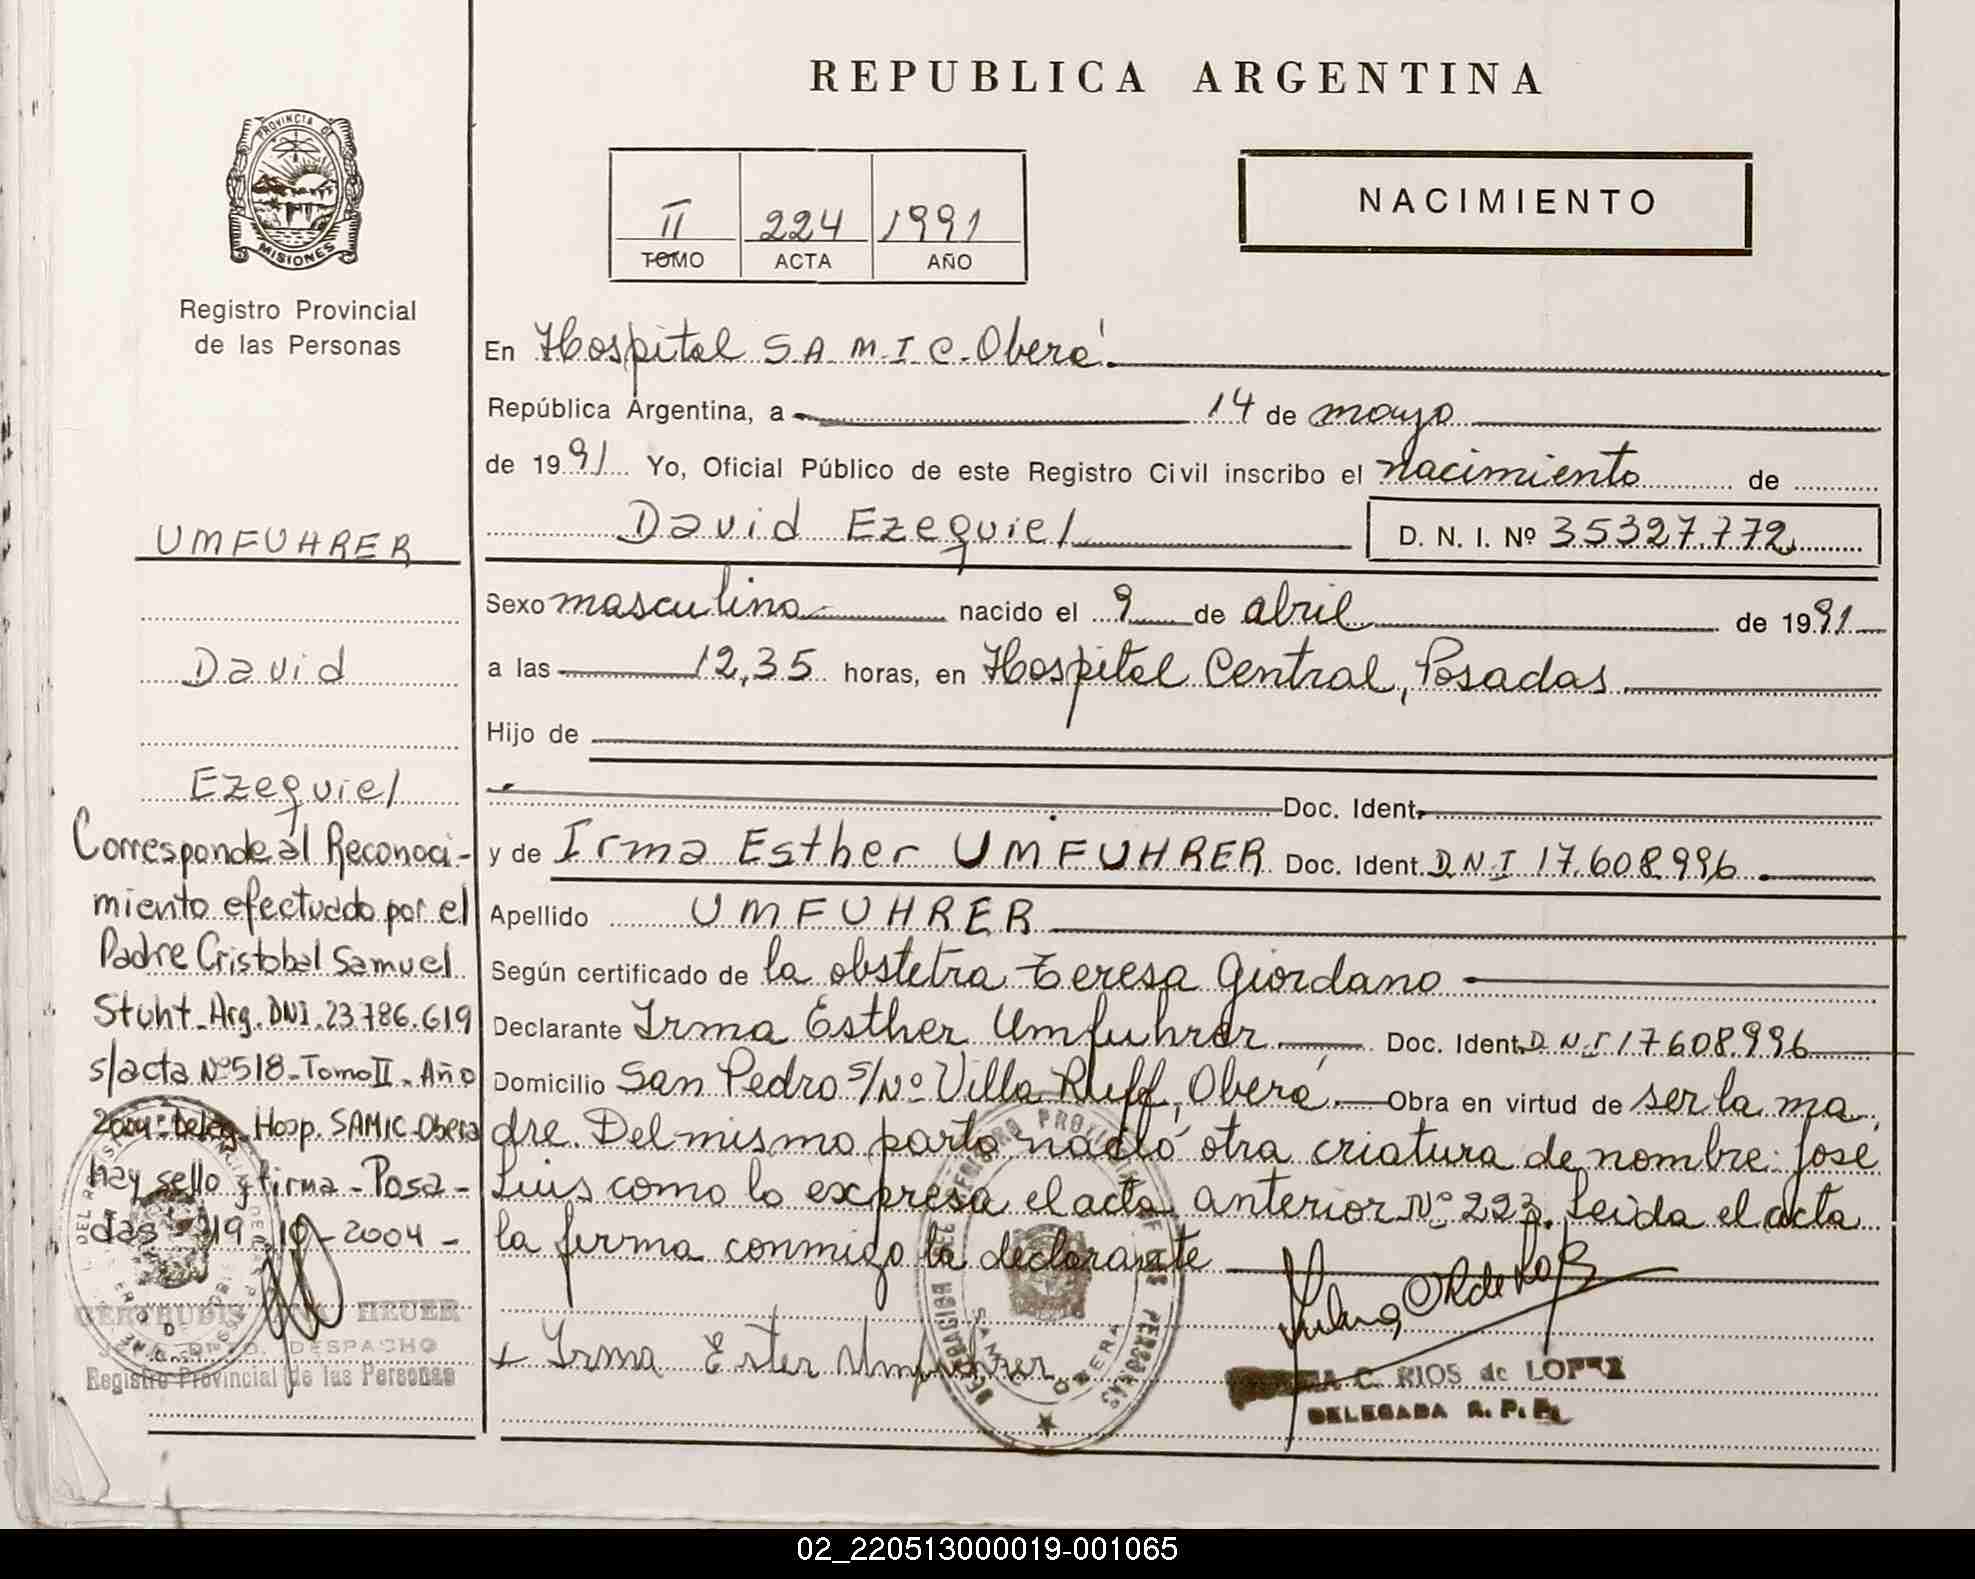 REPUBLICA ARGENTINA
PROVINCIA DE
MISIONES
Registro Provincial
de las Personas
II 224 1991
TOMO ACTA AÑO
NACIMIENTO
En Hospital S.A.M.I.C. Oberá
República Argentina, a 14 de mayo
de 1991 Yo, Oficial Público de este Registro Civil inscribo el nacimiento de
David Ezequiel D. N. I. Nº 35327.772
Sexo masculino nacido el 9 de abril de 1991
a las 12,35 horas, en Hospital Central, Posadas
Hijo de
Doc. Ident.
y de Irma Esther UMFUHRER Doc. Ident. D.N.I 17.608.996
Apellido UMFUHRER
Según certificado de la obstetra Teresa Giordano
Declarante Irma Esther Umfuhrer Doc. Ident. D.N.I 17608.996
Domicilio San Pedro s/Nº Villa Ruff, Oberá Obra en virtud de ser la ma
dre. Del mismo parto nació otra criatura de nombre: José
Luis como lo expresa el acta anterior Nº 223. Leída el acta
la firma conmigo la declarante
x Irma Ester Umfuhrer
C. RIOS de LOPEZ
DELEGADA R. P. P.
UMFUHRER
David
Ezequiel
Corresponde al Reconoci-
miento efectuado por el
Padre Cristobal Samuel
Stuht-Arg. DNI. 23.786.619
s/acta Nº 518-Tomo II-Año
2004-Deleg. Hosp. SAMIC-Oberá
hay sello y firma - Posa-
das 19-10-2004-
HEUER
DPTO. DESPACHO
Registro Provincial de las Personas
02_220513000019-001065